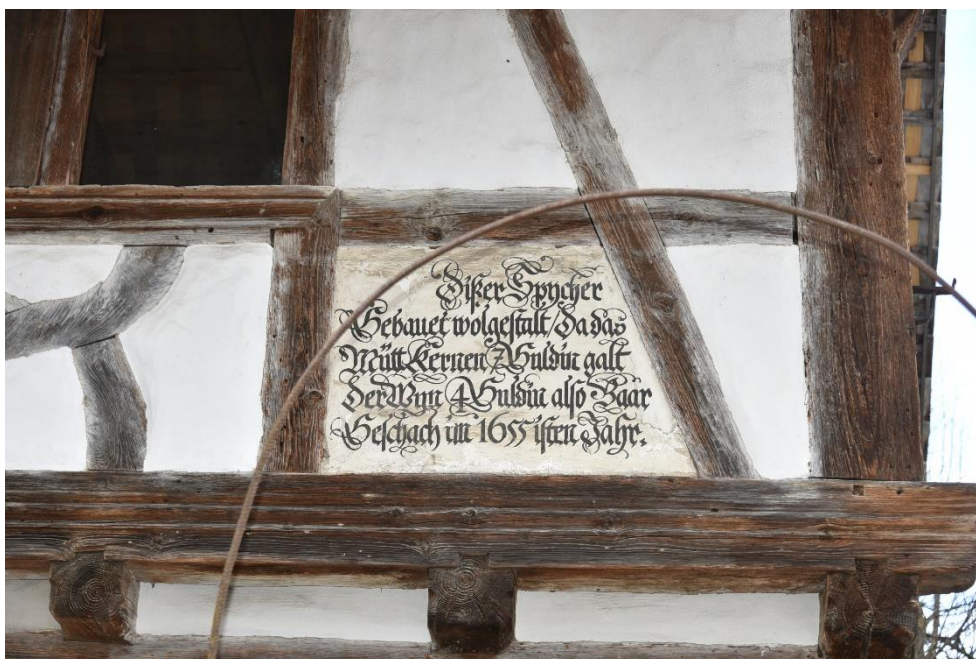 Dißer Spycher
Gebauet wolgestalt/Da das
Mütt Kernen 7 Guldin galt
Der Wyn 4 Guldin also Baar
Geschach im 1655 isten Jahr.